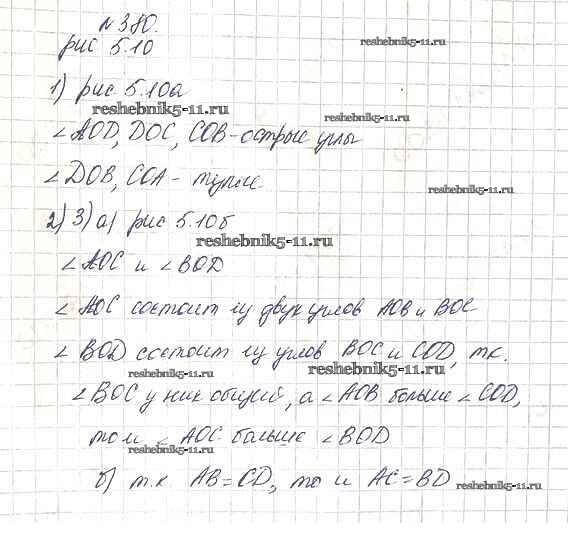 №380.
рис 5.10
reshebnik5-11.ru
1) рис. 5.10а
reshebnik5-11.ru
reshebnik5-11.ru
∠AOD, DOC, COB - острые углы
∠DOB, COA - тупые.
reshebnik5-11.ru
2) 3) а) рис 5.10б
reshebnik5-11.ru
∠AOC и ∠BOD
∠AOC состоит из двух углов AOB и BOC
∠BOD состоит из углов BOC и COD, т.к.
reshebnik5-11.ru
reshebnik5-11.ru
∠BOC у них общий, а ∠AOB больше ∠COD,
то и ∠AOC больше ∠BOD
reshebnik5-11.ru
б) т.к AB=CD, то и AC=BD
reshebnik5-11.ru